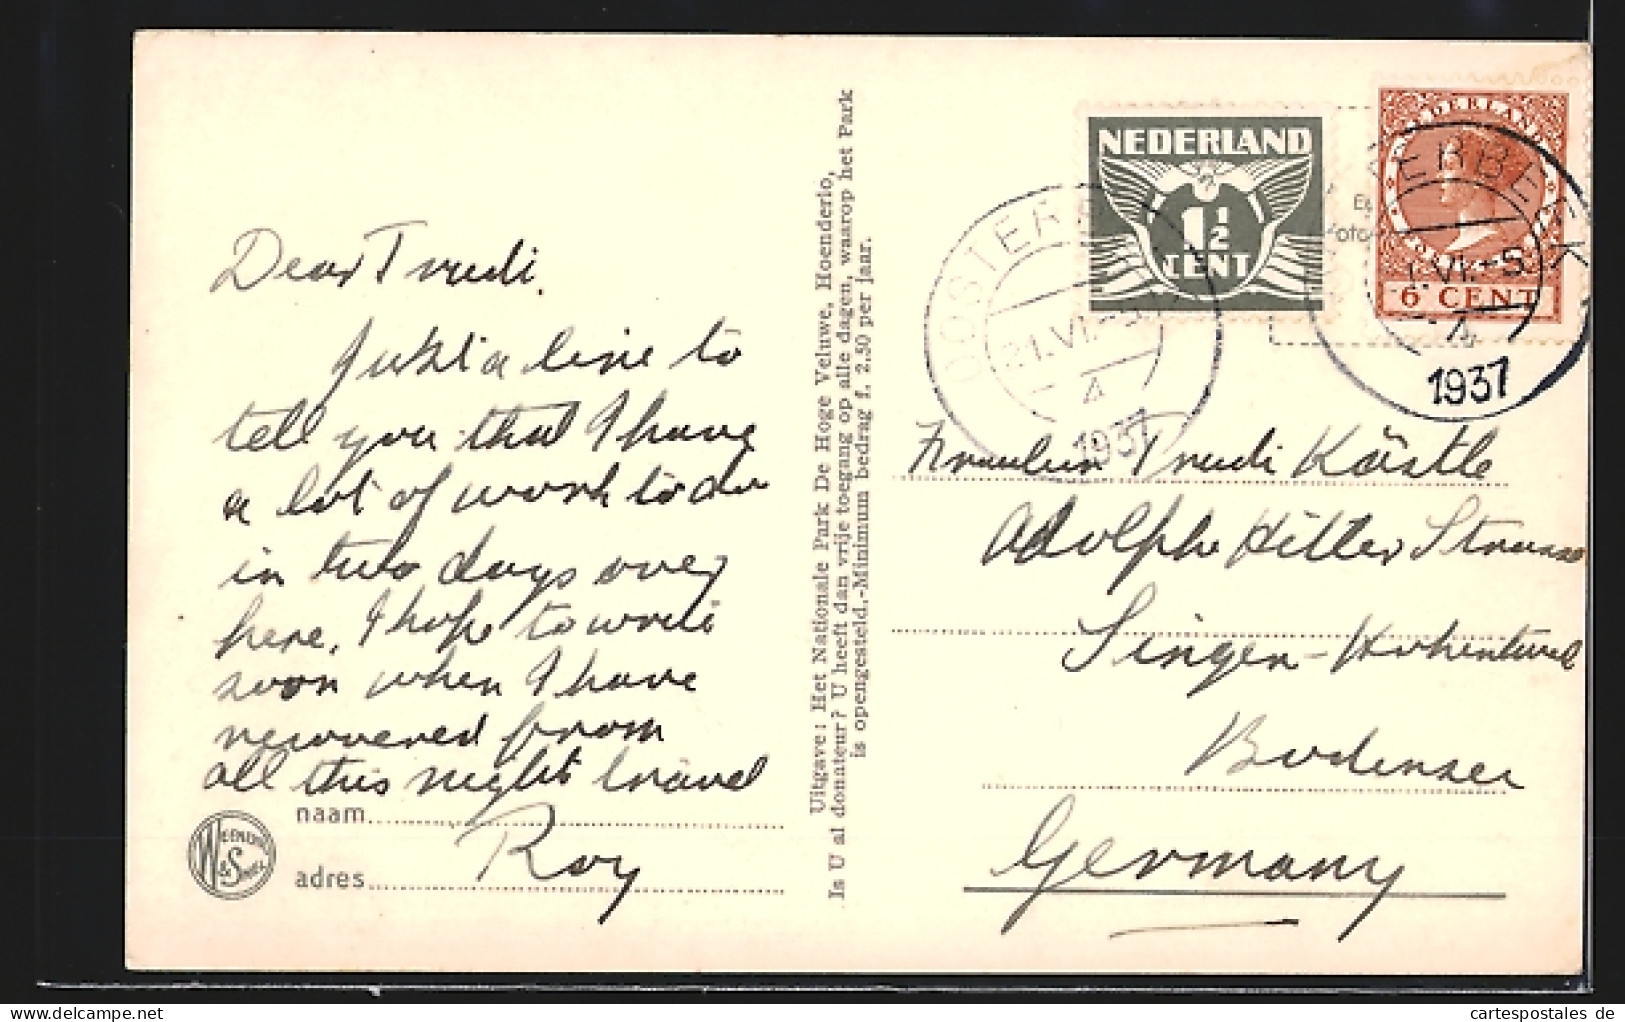 Dear Trudi.
Just a line to
tell you that I have
a lot of work to do
in two days over
here. I hope to write
soon when I have
recovered from
all this night travel
Roy
naam
adres
WEENENK & SNEL
Uitgave: Het Nationale Park De Hoge Veluwe, Hoenderlo,
Is U al donateur? U heeft dan vrije toegang op alle dagen, waarop het Park
is opengesteld.-Minimum bedrag f. 2.50 per jaar.
NEDERLAND
1½
CENT
NEDERLAND
6 CENT
OOSTERBEEK
21.VI.-5
4
1937
1.VI.-5
4
1937
Fraulein Trudi Kästle
Adolph Hitler Strasse
Singen-Hohentwiel
Bodensee
Germany
cartespostales de